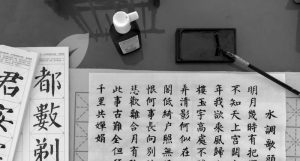 水調歌頭
明月幾時有把
不知天上宮闕
年我欲乘風歸
樓玉宇高處不
弄清影何似在
閣低綺戶照無
恨何事長向別
悲歡離合月有
此事古難全但
千里共嬋娟
都數
君